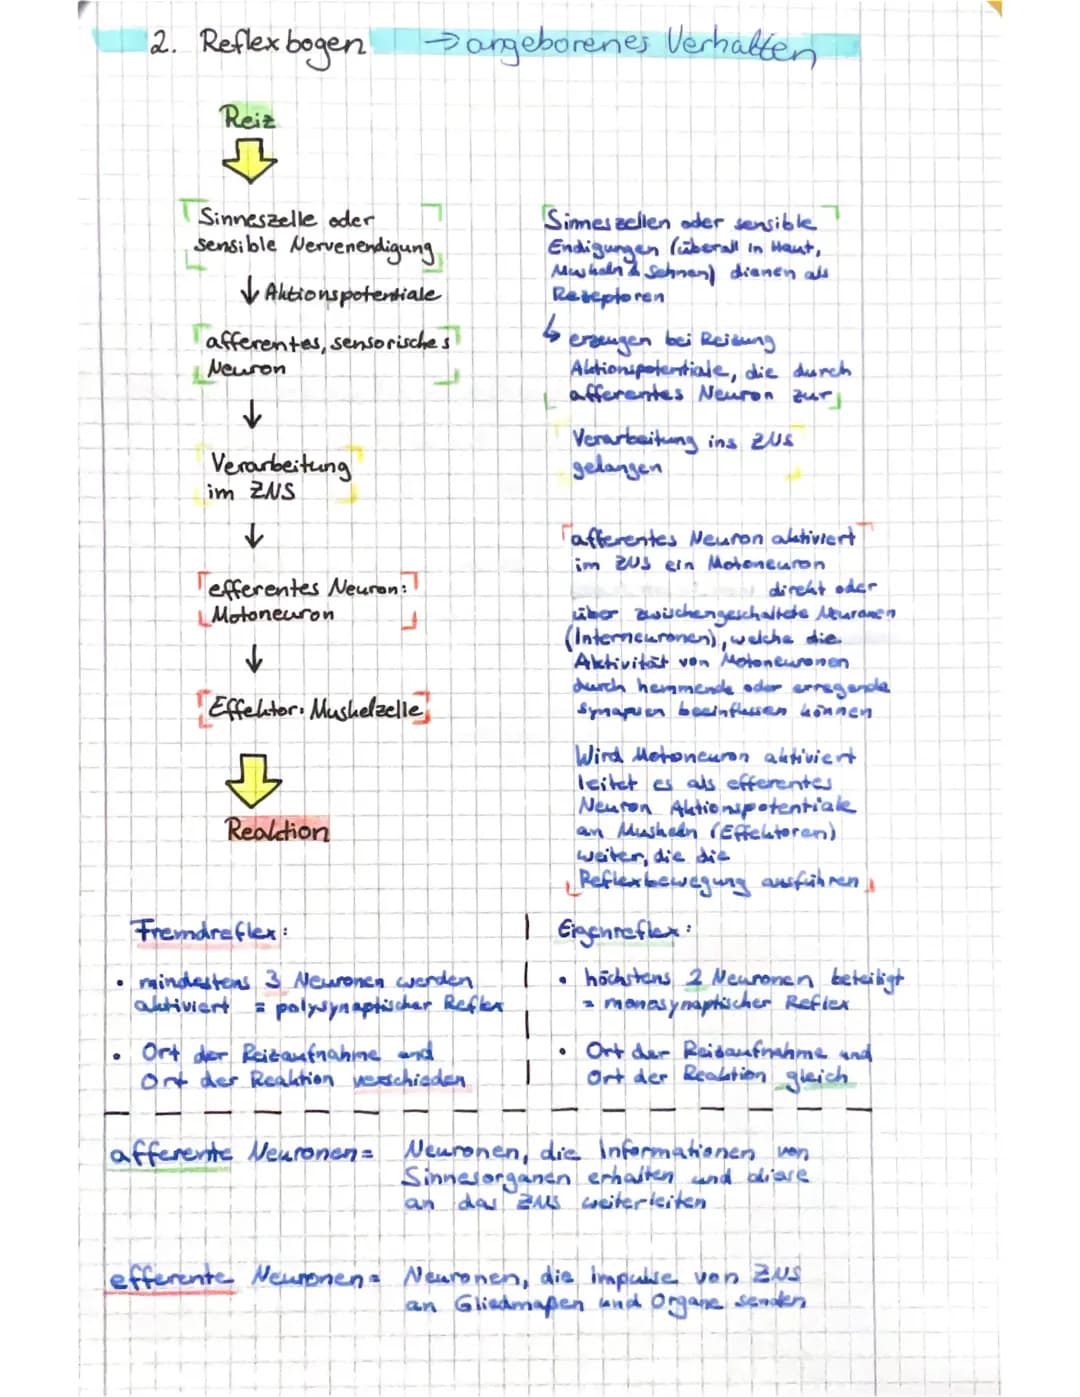 2. Reflexbogen → angeborenes Verhalten
Reiz
Sinneszelle oder
sensible Nervenendigung
↓ Aktionspotentiale
afferentes, sensorisches
Neuron
↓
Verarbeitung
im ZNS
↓
efferentes Neuron:
Motoneuron
↓
Effektor: Muskelzelle
Reaktion
Sinneszellen oder sensible
Endigungen (überall in Haut,
Muskeln & Sehnen) dienen als
Rezeptoren
↳ erzeugen bei Reizung
Aktionspotentiale, die durch
afferentes Neuron zur
Verarbeitung ins ZNS
gelangen
afferentes Neuron aktiviert
im ZNS ein Motoneuron
direkt oder
über zwischengeschaltete Neuronen
(Interneuronen), welche die
Aktivität von Motoneuronen
durch hemmende oder erregende
Synapsen beeinflussen können
Wird Motoneuron aktiviert
leitet es als efferentes
Neuron Aktionspotentiale
an Muskeln (Effektoren)
weiter, die die
Reflexbewegung ausführen
Fremdreflex:
• mindestens 3 Neuronen werden
aktiviert = polysynaptischer Reflex
• Ort der Reizaufnahme und
Ort der Reaktion verschieden
Eigenreflex:
• höchstens 2 Neuronen beteiligt
= monosynaptischer Reflex
• Ort der Reizaufnahme und
Ort der Reaktion gleich
afferente Neuronen = Neuronen, die Informationen von
Sinnesorganen erhalten und diese
an das ZNS weiterleiten
efferente Neuronen = Neuronen, die Impulse von ZNS
an Gliedmaßen und Organe senden